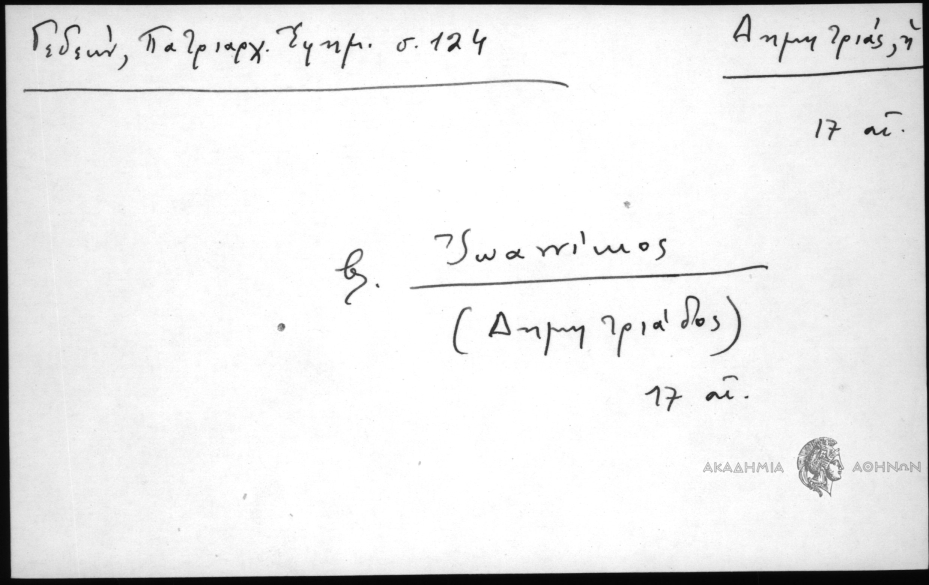 Γεδεών, Πατριαρχ. Ἐφημ. σ. 124
Δημητριάς, ἡ
17 αἰ.
βλ. Ἰωαννίκιος
(Δημητριάδος)
17 αἰ.
ΑΚΑΔΗΜΙΑ ΑΘΗΝΩΝ